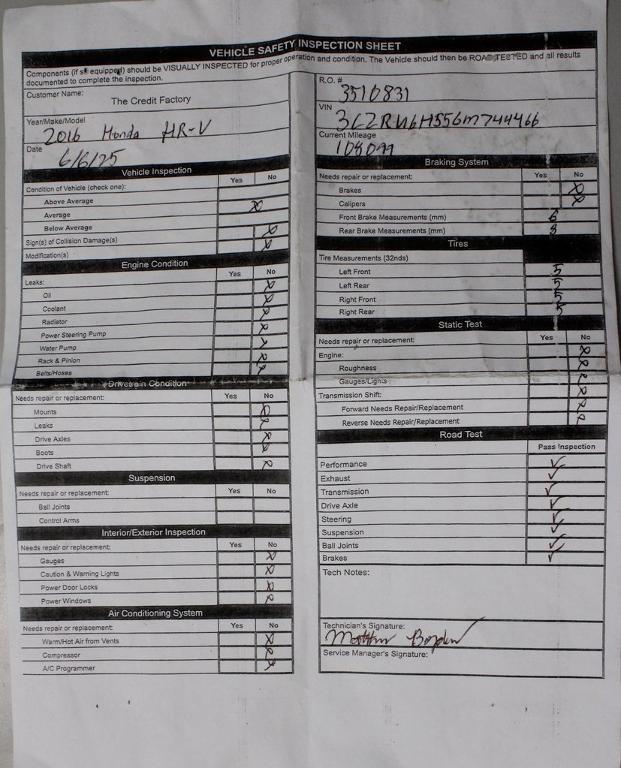 VEHICLE SAFETY INSPECTION SHEET
Components (if so equipped) should be VISUALLY INSPECTED for proper operation and condition. The Vehicle should then be ROAD TESTED and all results
documented to complete the inspection.
Customer Name:
The Credit Factory
Year/Make/Model
2016 Honda HR-V
Date
6/6/25
R.O. #
3510831
VIN
Current Mileage
Vehicle Inspection
Yes No
Condition of Vehicle (check one):
Above Average
Average
Below Average
Sign(s) of Collision Damage(s)
Modification(s)
Engine Condition
Yes No
Leaks:
Oil
Coolant
Radiator
Power Steering Pump
Water Pump
Rack & Pinion
Belts/Hoses
Drivetrain Condition
Needs repair or replacement: Yes No
Mounts
Leaks
Drive Axles
Boots
Drive Shaft
Suspension
Needs repair or replacement: Yes No
Ball Joints
Control Arms
Interior/Exterior Inspection
Needs repair or replacement: Yes No
Gauges
Caution & Warning Lights
Power Door Locks
Power Windows
Air Conditioning System
Needs repair or replacement: Yes No
Warm/Hot Air from Vents
Compressor
A/C Programmer
Braking System
Needs repair or replacement: Yes No
Brakes
Calipers
Front Brake Measurements (mm)
Rear Brake Measurements (mm) 8
Tires
Tire Measurements (32nds)
Left Front 5
Left Rear 5
Right Front 5
Right Rear 5
Static Test
Needs repair or replacement: Yes No
Engine:
Roughness
Gauges/Lights
Transmission Shift:
Forward Needs Repair/Replacement
Reverse Needs Repair/Replacement
Road Test
Pass Inspection
Performance
Exhaust
Transmission
Drive Axle
Steering
Suspension
Ball Joints
Brakes
Tech Notes:
Technician's Signature:
Service Manager's Signature: